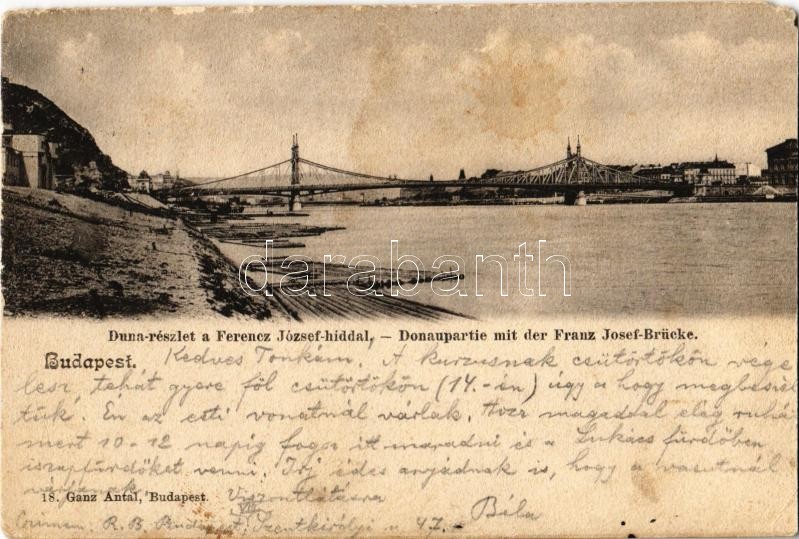 darabanth
Duna-részlet a Ferencz József-híddal. – Donaupartie mit der Franz Josef-Brücke.
Budapest.
Kedves Tonkám. A kurzusnak csütörtökön vége
lesz, tehát gyere föl csütörtökön (14.-én) úgy a hogy megbeszél
tük. Én az esti vonatnál várlak. Hozz magaddal elég ruhá
mert 10-12 napig fogsz itt maradni és a Lukács fürdőben
iszapfürdőket venni. Írj édes anyádnak is, hogy a vasutnál
várjanak. Viszontlátásra
18. Ganz Antal, Budapest.
Béla
R. B. Budapest, Szentkirályi u. 47.